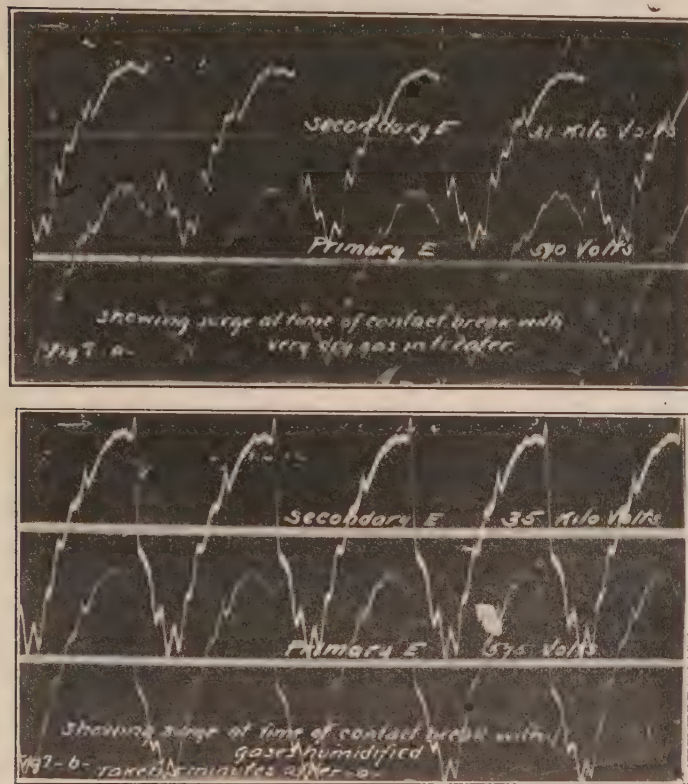 Secondary E 31 Kilo Volts
Primary E 590 Volts
Showing surge at time of contact break with
very dry gas in treater.
Fig 7-a-
Secondary E 35 Kilo Volts
Primary E 575 Volts
Showing surge at time of contact break with
gases humidified
Fig 7-b-
Taken minutes after -a-